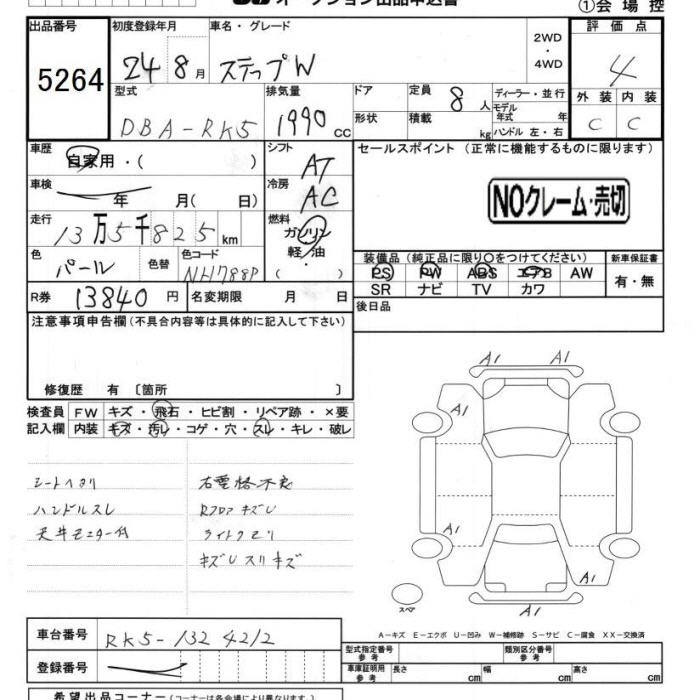 オークション出品申込書
①会場控
出品番号
5264
初度登録年月
24 8月
車名・グレード
ステップW
2WD
・
4WD
評価点
4
外装 内装
C C
型式
DBA-RK5
排気量
1990 cc
ドア
形状
定員 8人
積載 kg
ディーラー・並行
モデル年式 年
ハンドル 左・右
車歴
自家用・( )
シフト
AT
セールスポイント (正常に機能するものに限ります)
NOクレーム・売切
車検
年 月( 日)
冷房
AC
走行
13万5千825km
燃料
ガソリン
軽・油
( )
色
パール
色替
色コード
NH788P
装備品 (純正品に限り○をつけてください)
新車保証書
PS PW ABS エアB AW
SR ナビ TV カワ
有・無
R券 13840円
名変期限 月 日
後日品
注意事項申告欄(不具合内容等は具体的に記入して下さい)
修復歴 有 〔箇所 〕
検査員
記入欄
FW キズ・飛石・ヒビ割・リペア跡・×要
内装 キズ・汚レ・コゲ・穴・スレ・キレ・破レ
シートヘタリ
ハンドルスレ
天井モニター付
右電格不良
Rフロアキズ凹
ライトクモリ
キズ凹スリキズ
A1 A1
A1
A1
A1
A1
スペア
A-キズ E-エクボ U-凹み W-補修跡 S-サビ C-腐食 XX-交換済
車台番号
RK5-1324212
登録番号
型式指定番号 参考
類別区分番号 参考
車庫証明用 参考
長さ cm 幅 cm 高さ cm
希望出品コーナー(コーナーは各会場により異なります。)